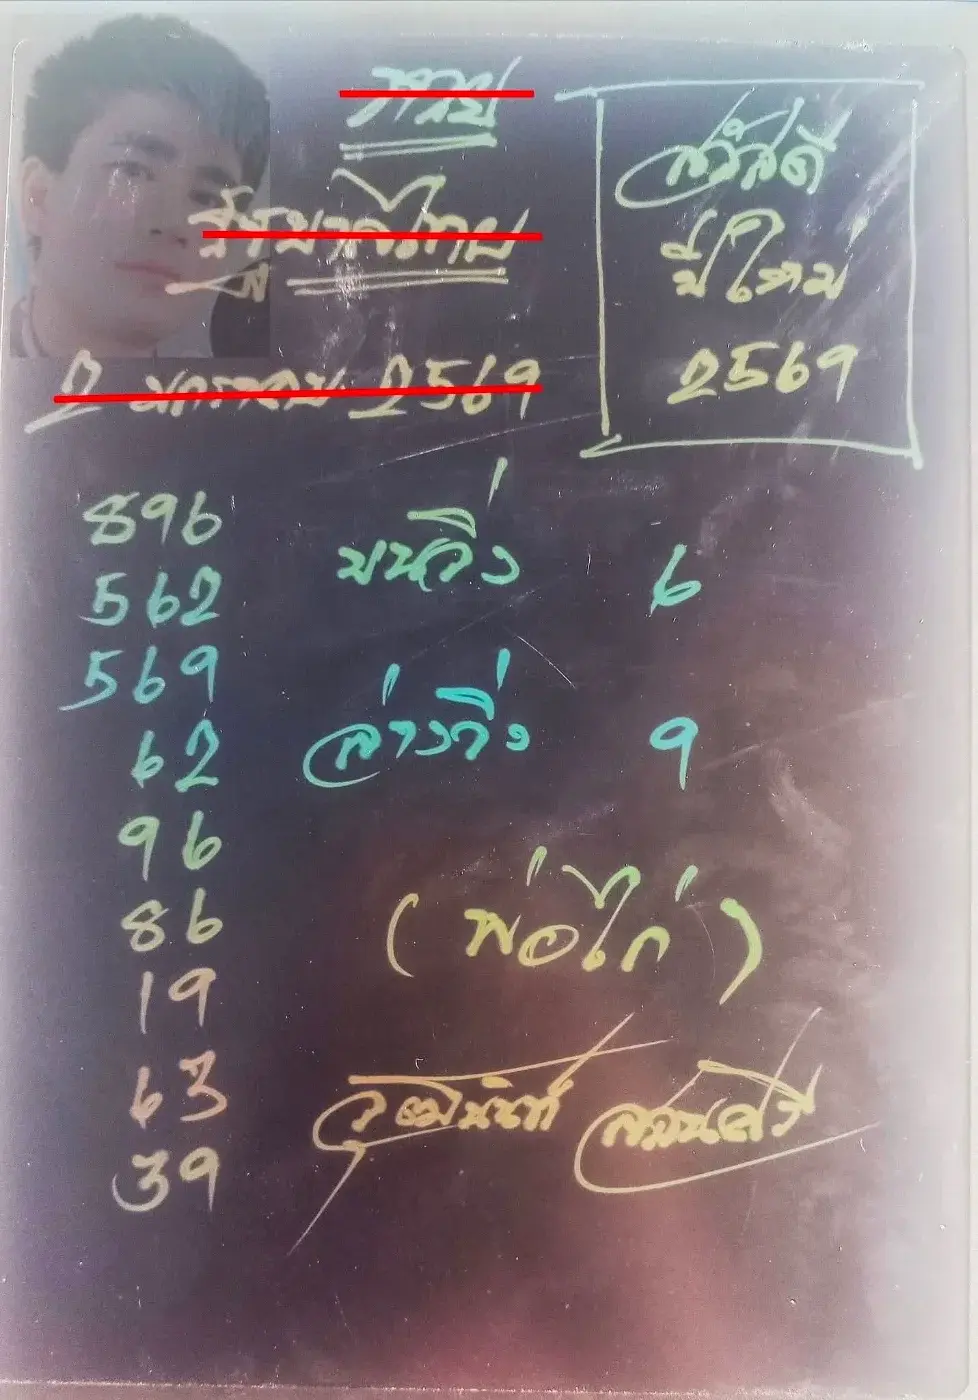 หวย
รัฐบาลไทย
2 มกราคม 2569
สวัสดี
ปีใหม่
2569
896
562
569
62
96
86
19
63
39
บนวิ่ง 6
ล่างวิ่ง 9
(พ่อไก่)
วุฒินันท์ สวนศรี